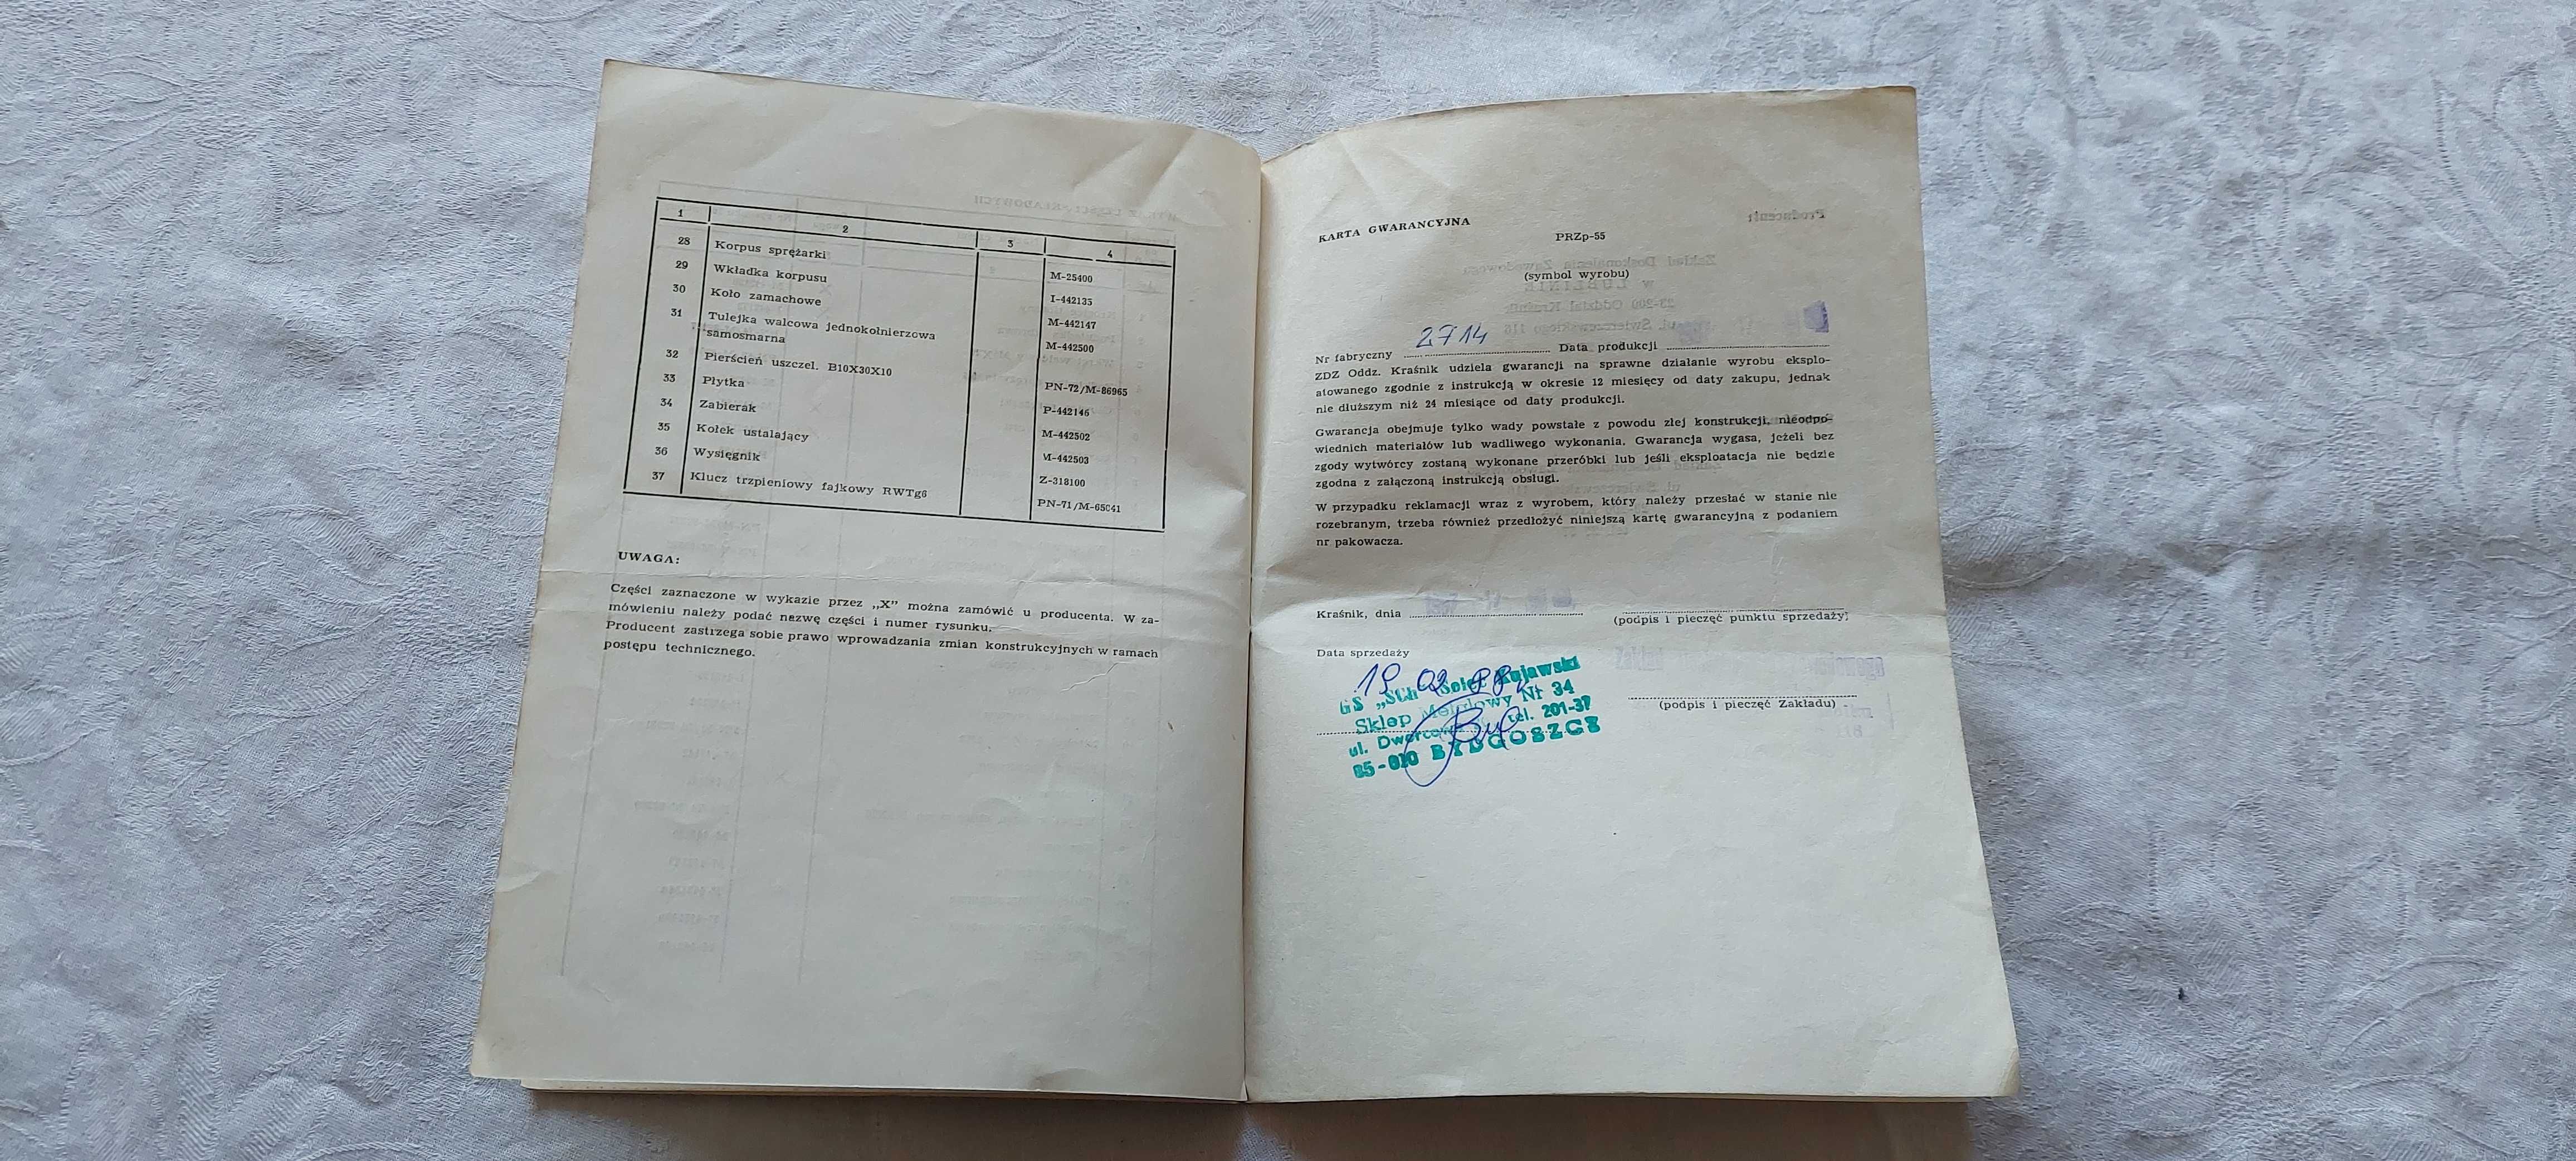 1 2 3 4
28 Korpus sprężarki M-25400
29 Wkładka korpusu I-442135
30 Koło zamachowe M-442147
31 Tulejka walcowa jednokołnierzowa M-442500
samosmarna
32 Pierścień uszczel. B10X30X10 PN-72/M-86965
33 Płytka P-442146
34 Zabierak M-442502
35 Kołek ustalający M-442503
36 Wysięgnik Z-318100
37 Klucz trzpieniowy fajkowy RWTg6 PN-71/M-65041
UWAGA:
Części zaznaczone w wykazie przez „X” można zamówić u producenta. W za-
mówieniu należy podać nazwę części i numer rysunku.
Producent zastrzega sobie prawo wprowadzania zmian konstrukcyjnych w ramach
postępu technicznego.
KARTA GWARANCYJNA
PRZp-55
(symbol wyrobu)
Nr fabryczny 2714 Data produkcji
ZDZ Oddz. Kraśnik udziela gwarancji na sprawne działanie wyrobu eksplo-
atowanego zgodnie z instrukcją w okresie 12 miesięcy od daty zakupu, jednak
nie dłuższym niż 24 miesiące od daty produkcji.
Gwarancja obejmuje tylko wady powstałe z powodu złej konstrukcji, nieodpo-
wiednich materiałów lub wadliwego wykonania. Gwarancja wygasa, jeżeli bez
zgody wytwórcy zostaną wykonane przeróbki lub jeśli eksploatacja nie będzie
zgodna z załączoną instrukcją obsługi.
W przypadku reklamacji wraz z wyrobem, który należy przesłać w stanie nie
rozebranym, trzeba również przedłożyć niniejszą kartę gwarancyjną z podaniem
nr pakowacza.
Kraśnik, dnia
(podpis i pieczęć punktu sprzedaży)
Data sprzedaży
19 02 88
GS „SCh” Solec Kujawski
Sklep Metalowy Nr 34
ul. Dworcowa tel. 201-37
85-010 BYDGOSZCZ
(podpis i pieczęć Zakładu)